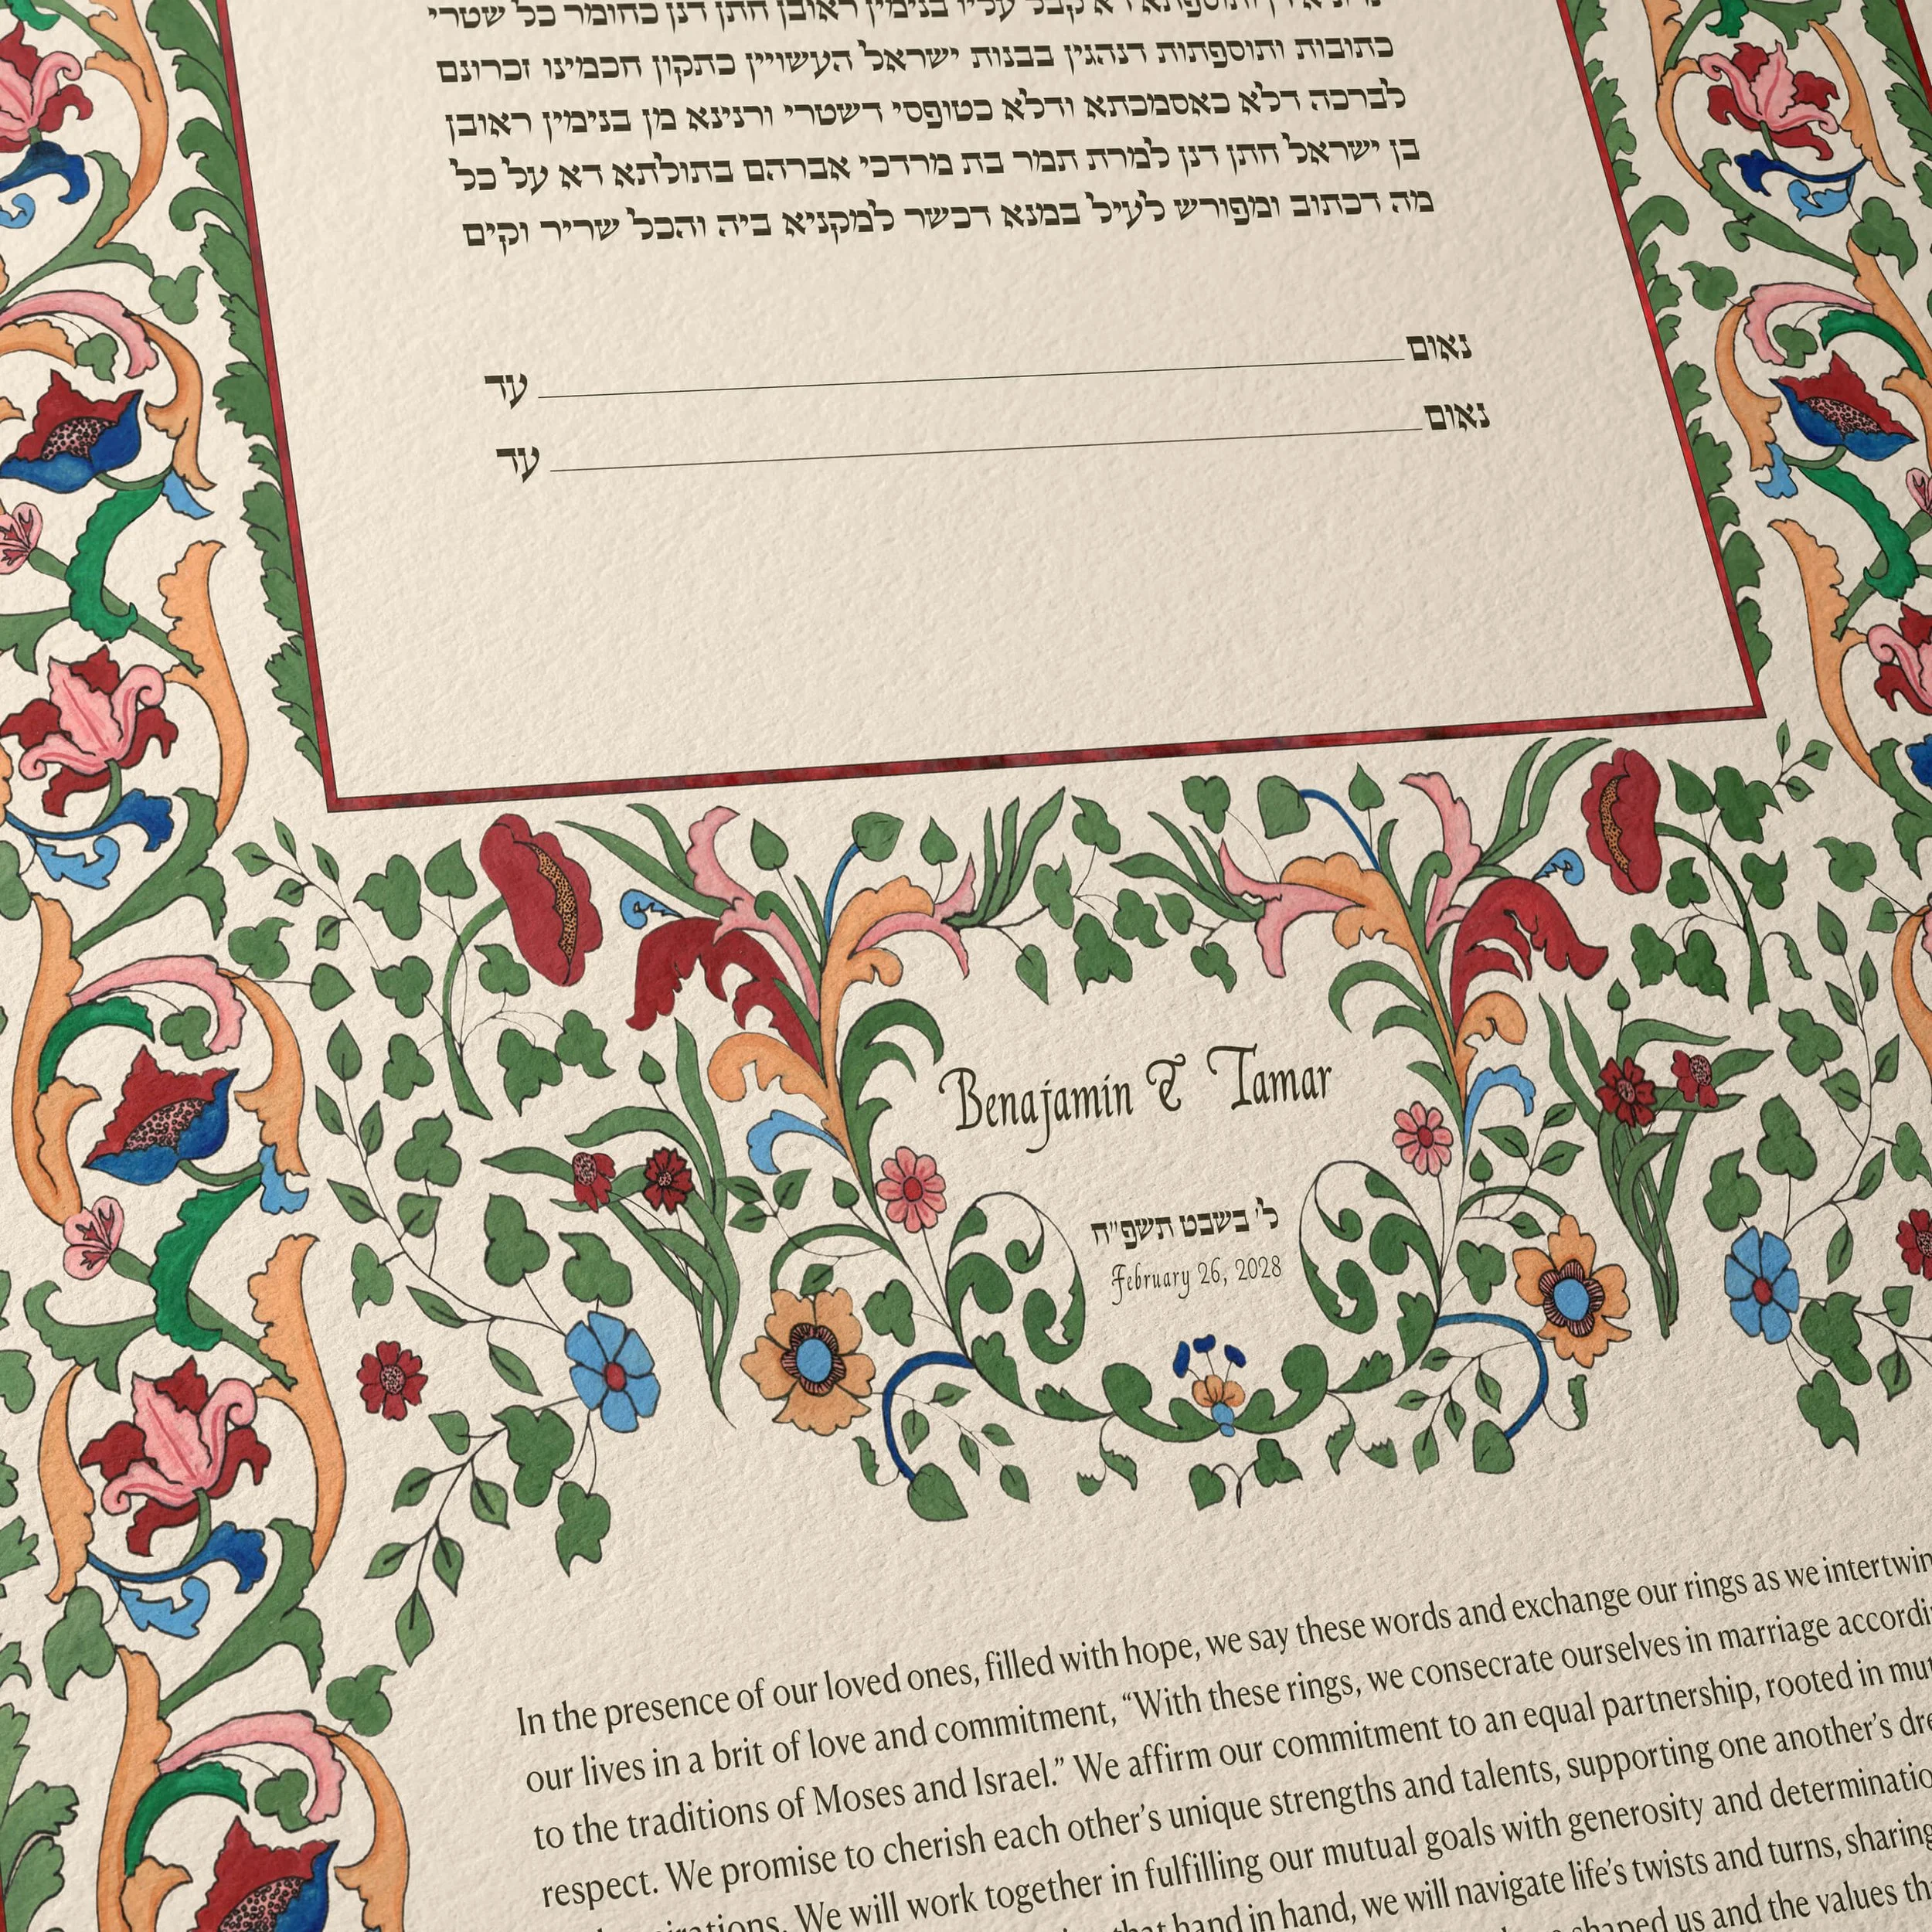 דא קבל עליו בנימין ראובן חתן דנן כחומר כל שטרי
כתובות ותוספתות דנהגין בבנות ישראל העשויין כתקון חכמינו זכרונם
לברכה דלא כאסמכתא ודלא כטופסי דשטרי וקנינא מן בנימין ראובן
בן ישראל חתן דנן למרת תמר בת מרדכי אברהם בתולתא דא על כל
מה דכתוב ומפורש לעיל במנא דכשר למקניא ביה והכל שריר וקים
נאום עד
נאום עד
Benajamin & Tamar
ל' בשבט תשפ"ח
February 26, 2028
In the presence of our loved ones, filled with hope, we say these words and exchange our rings as we
our lives in a brit of love and commitment, “With these rings, we consecrate ourselves in marriage
to the traditions of Moses and Israel.” We affirm our commitment to an equal partnership, rooted in
respect. We promise to cherish each other’s unique strengths and talents, supporting one another’s
We will work together in fulfilling our mutual goals with generosity and
hand in hand, we will navigate life’s twists and turns, sharing
shaped us and the values